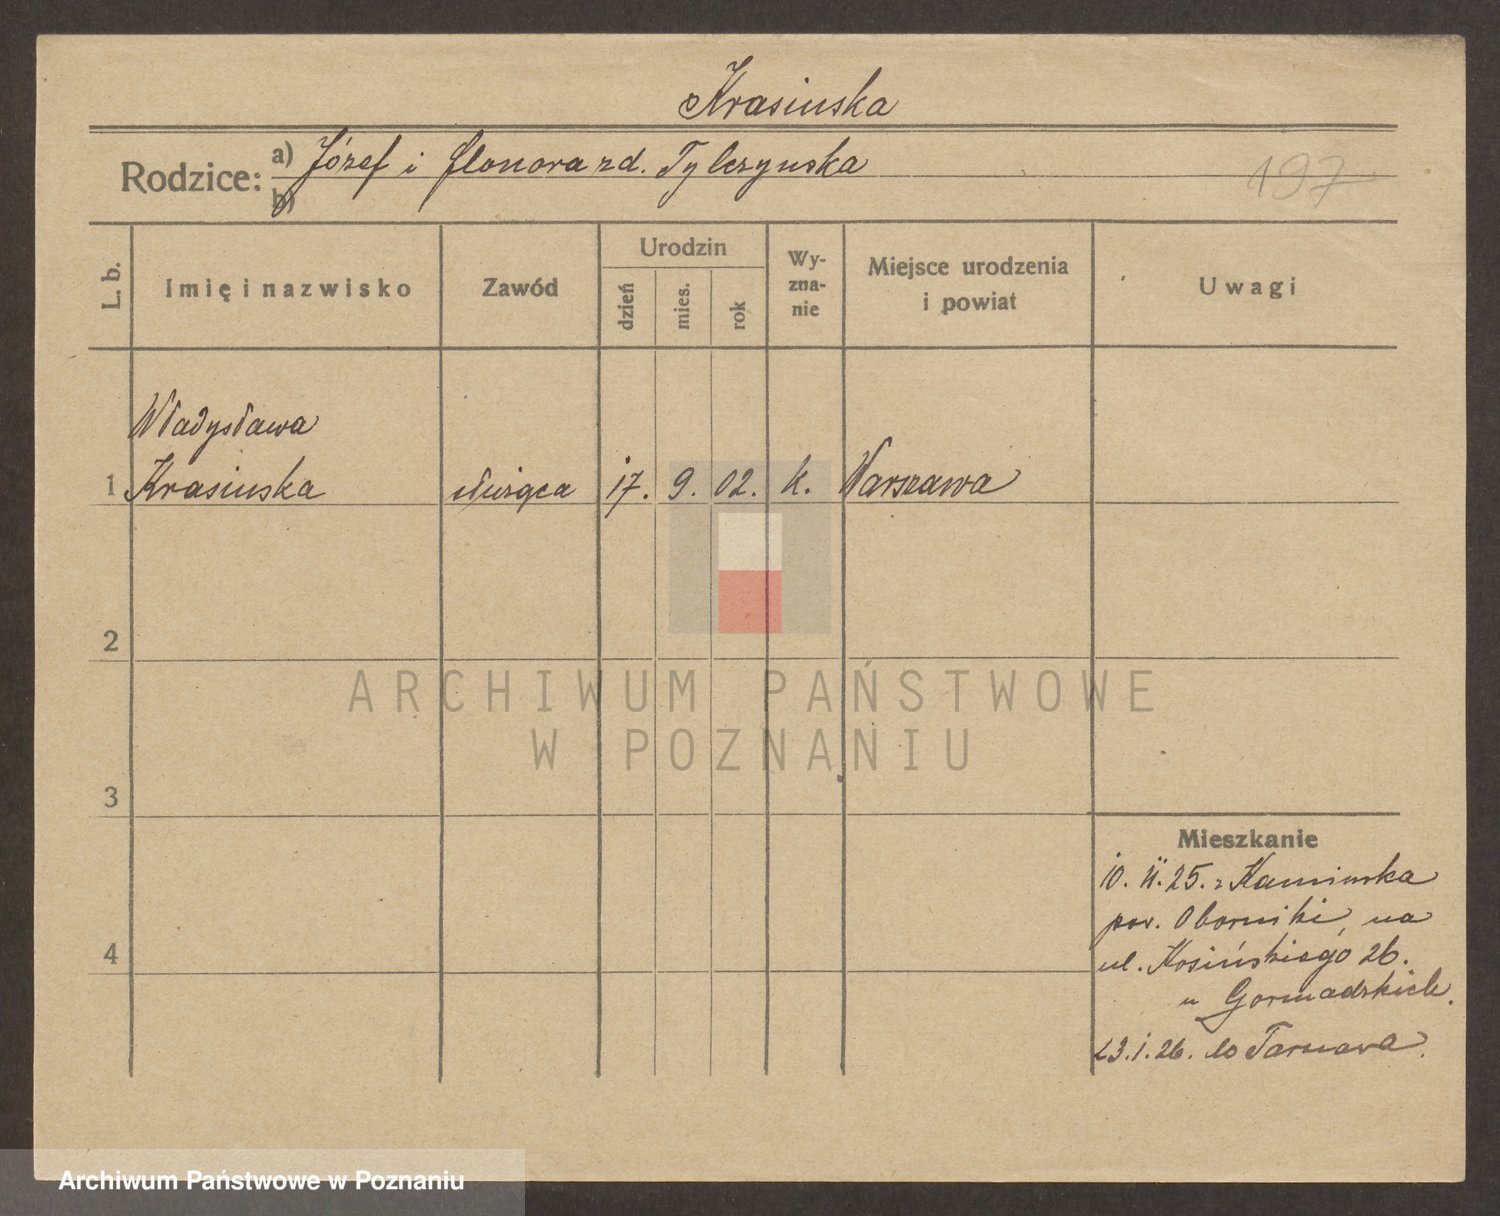 Krasinska
Rodzice: a) Józef i Elonora zd. Tylczynska
b)
197
L. b. Imię i nazwisko Zawód Urodzin dzień mies. rok Wy-zna-nie Miejsce urodzenia i powiat Uwagi
Władysława
1 Krasinska służąca 17. 9. 02. k. Warszawa
2
ARCHIWUM PAŃSTWOWE
W POZNANIU
3
Mieszkanie
10. 11. 25. z Kaminska
pow. Oborniki, na
4
ul. Kosińskiego 26.
u
23. 1. 26. do Tarnowa.
Archiwum Państwowe w Poznaniu